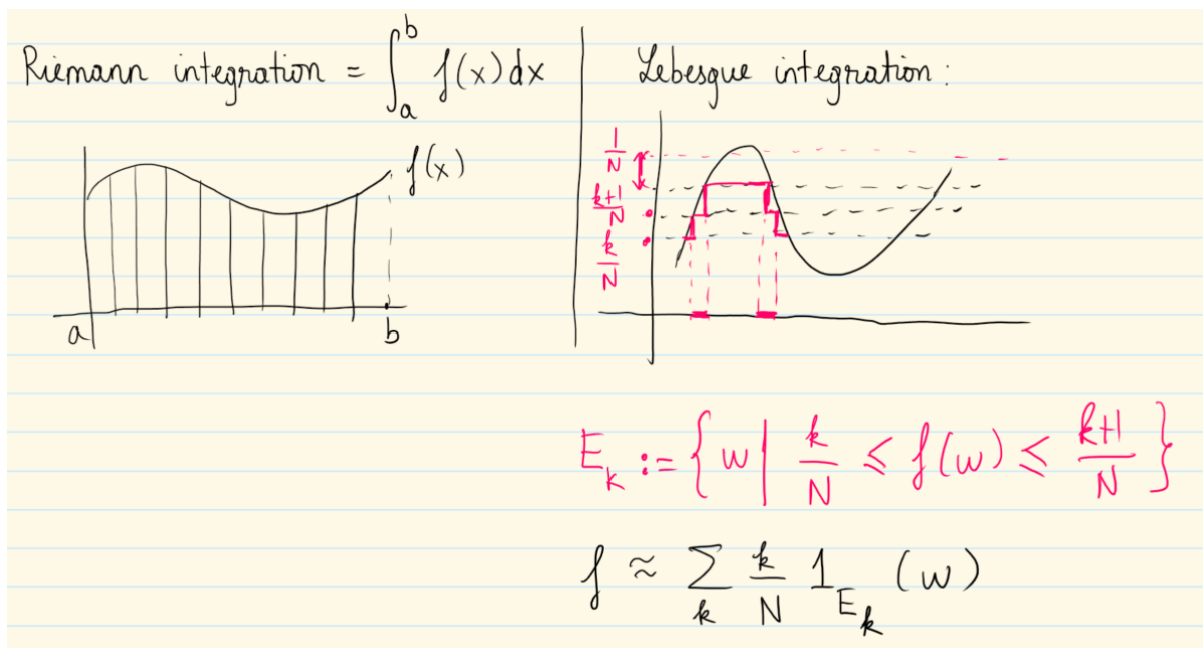 Riemann integration = ∫_a^b f(x) dx
f(x)
a
b
Lebesgue integration:
1/N
k+1/N
k/N
E_k := { w | k/N ≤ f(w) ≤ k+1/N }
f ≈ ∑_k k/N 1_{E_k} (w)